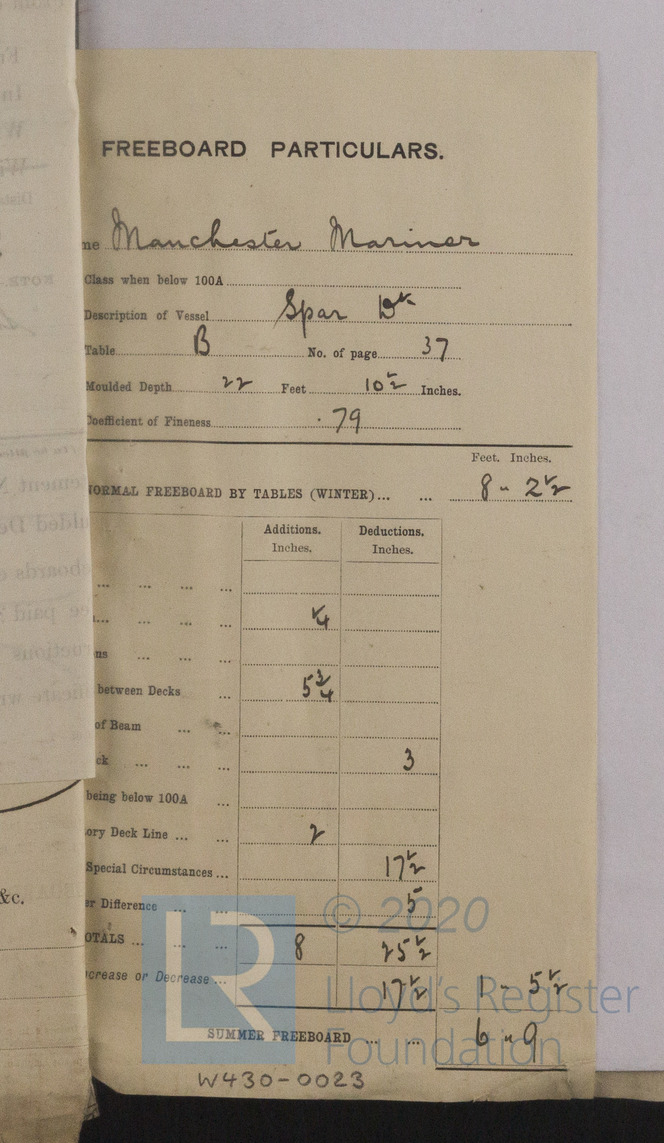 FREEBOARD PARTICULARS.
me Manchester Mariner
Class when below 100A
Description of Vessel Spar Dk
Table B No. of page 37
Moulded Depth 22 Feet 10½ Inches.
Coefficient of Fineness ·79
Feet. Inches.
NORMAL FREEBOARD BY TABLES (WINTER)... ... 8 - 2½
Additions. Inches. Deductions. Inches.
... ... ... ...
... ... ... ... ¼
ns ... ... ...
between Decks ... 5¾
of Beam ... ...
ck ... ... ... 3
being below 100A ...
ory Deck Line ... ... 2
Special Circumstances ... 17½
er Difference ... ... 5
OTALS ... ... ... 8 25½
ncrease or Decrease ... 17½ 1 - 5½
SUMMER FREEBOARD ... ... 6 - 9
W430-0023
&c.
LR
© 2020
Lloyd's Register
Foundation